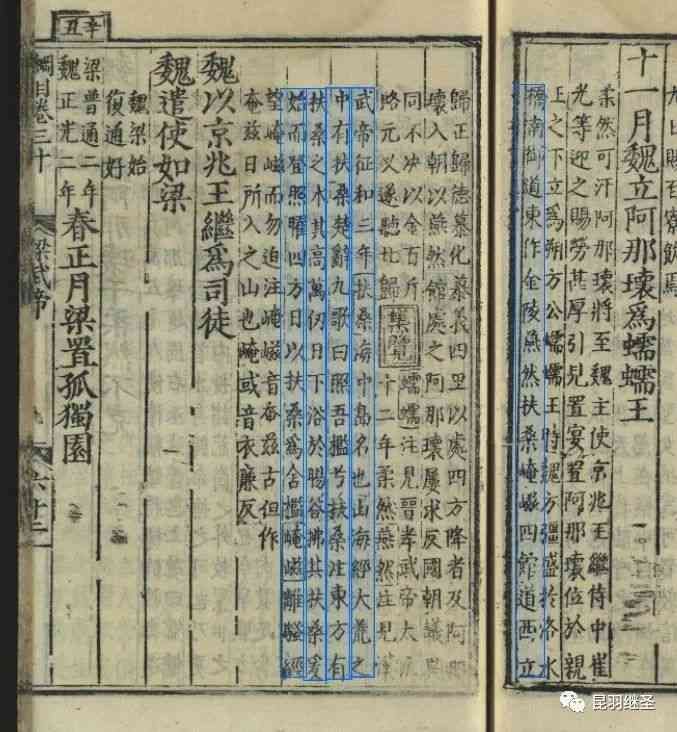 九上賜召寮飲焉
十一月魏立阿那壞爲蠕蠕王
柔然可汗阿那壞將至魏主使京兆王繼侍中崔
光等迎之賜勞甚厚引見置宴置阿那壞位於親
王之下立爲朔方公蠕蠕王時魏方彊盛於洛水
橋南御道東作金陵燕然扶桑崦嵫四館道西立
歸正歸德慕化慕義四里以處四方降者及阿那
壞入朝以燕然館處之阿那壞屢求反國朝議異
同不決以金百斤
賂元乂遂聽北歸
集覽
蠕蠕注見晉孝武帝太元
十二年柔然燕然注見漢
武帝征和三年扶桑海中島名也山海經大荒之
中有扶桑楚辭九歌曰照吾檻兮扶桑注東方有
扶桑之木其高萬仞日下浴於暘谷拂其扶桑爰
始而登照曜四方日以扶桑爲舍檻崦嵫離騷經
望崦嵫而勿迫注崦嵫音奄茲古但作
奄茲日所入之山也崦或音衣廉反
魏以京兆王繼爲司徒
魏遣使如梁
魏梁始
復通好
辛丑
梁普通二年
魏正光二年
春正月梁置孤獨園
綱目卷三十
梁武帝
六十二
昆羽继圣